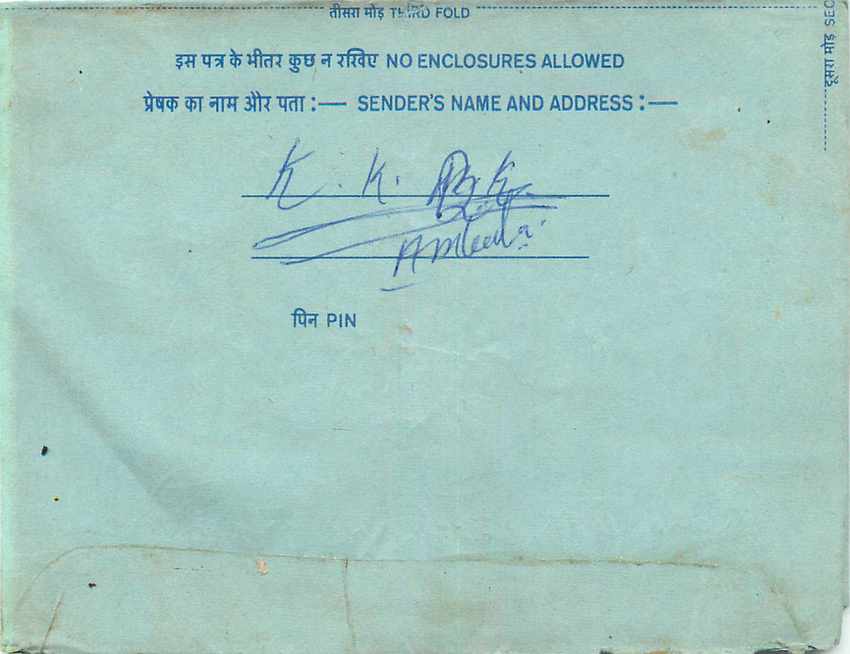 तीसरा मोड़ THIRD FOLD
दूसरा मोड़ SEC
इस पत्र के भीतर कुछ न रखिए NO ENCLOSURES ALLOWED
प्रेषक का नाम और पता :— SENDER'S NAME AND ADDRESS :—
K. K.
पिन PIN